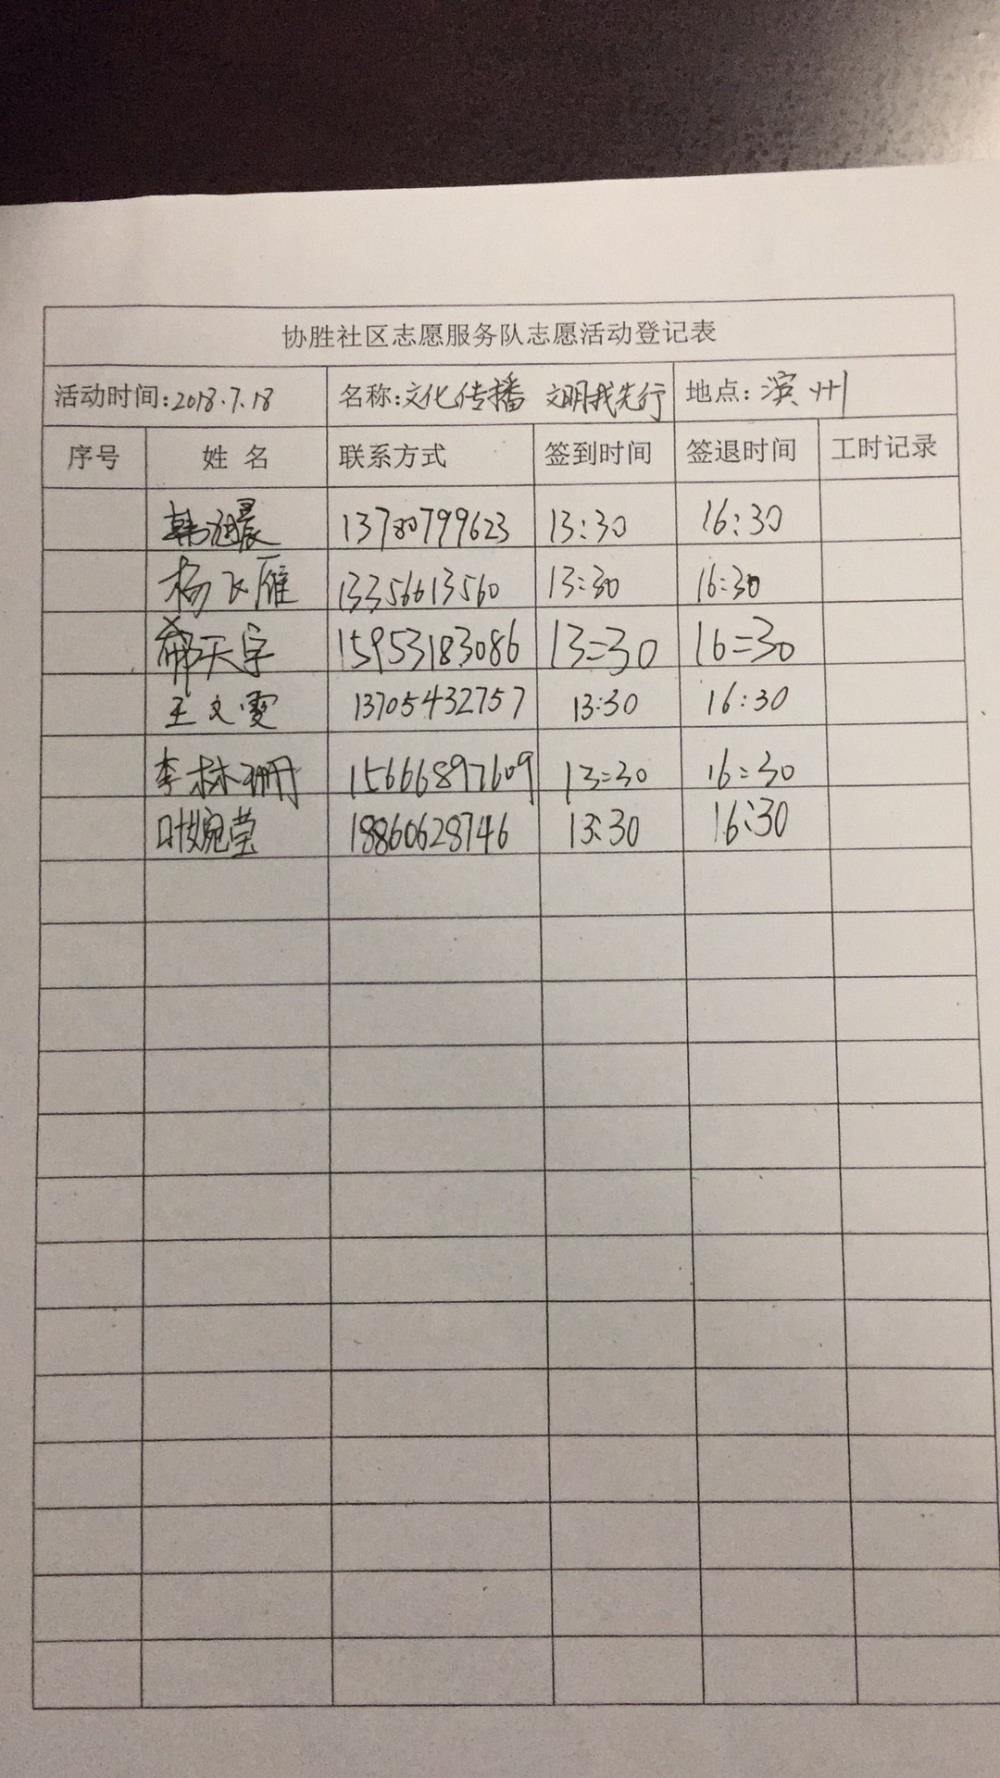 协胜社区志愿服务队志愿活动登记表
活动时间:2018.7.18 名称:文化传播 文明我先行 地点:滨州
序号 姓名 联系方式 签到时间 签退时间 工时记录
韩润晨 13780799623 13:30 16:30
杨飞雁 13356613560 13:30 16:30
郗天宇 15953183086 13:30 16:30
王文雯 13705432757 13:30 16:30
李林珊 15666897609 13:30 16:30
叶婉莹 18860628746 13:30 16:30